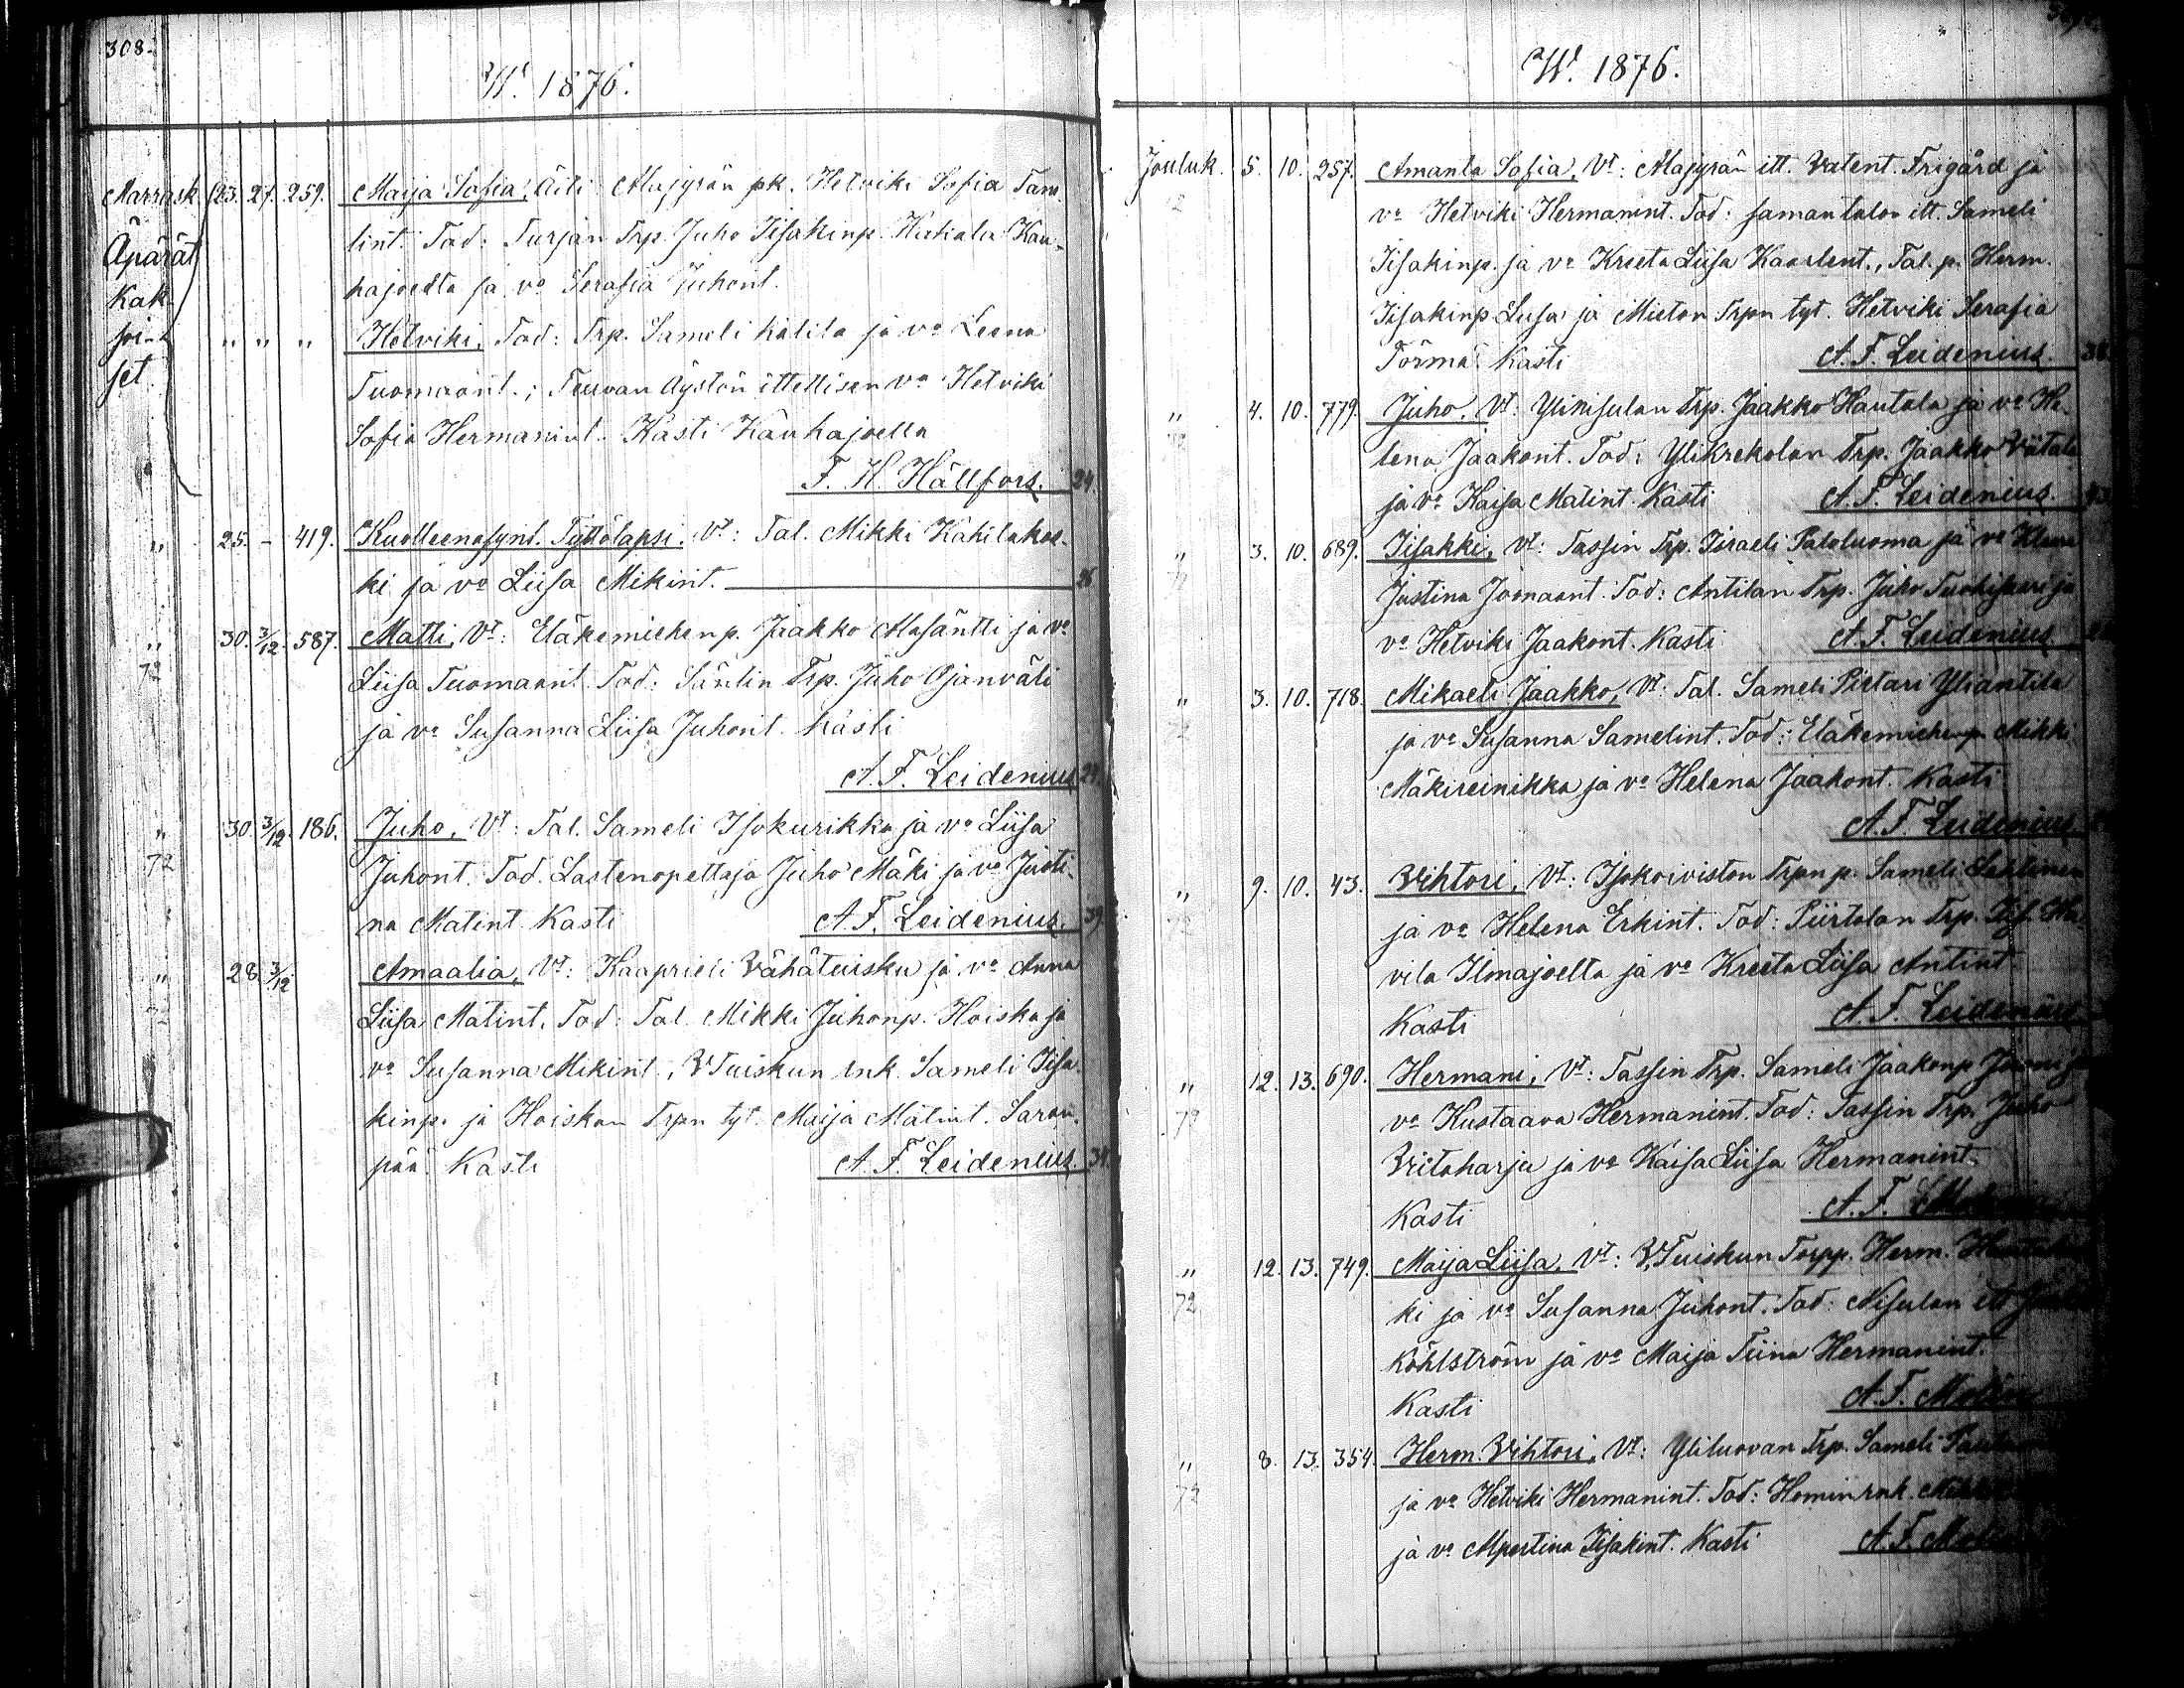 308.
W. 1876.
Marrask. 23. 27. 259. Maija Sofia, Äiti: Majyrän pk. Hetviki Sofia Tam-
Äpärät lint. Tod: Turjan Trp. Juho Iisakinp. Hakala Kau-
Kak- hajoelta ja vo Serafia Juhont.
soi- " " " Hetviki, Tod: Trp. Sameli Katila ja vo Leena
set Tuomaant.; Teuvan Äystön ittellisen vo Hetviki
Sofia Hermanint. Kasti Kauhajoella
F. H. Hällfors. 24.
" 25. - 419. Kuolleenasynt. Tyttölapsi. Vt: Tal. Mikki Kähilakos-
ki ja vo Liisa Mikint. 26
" 30. 3/12. 587. Matti, Vt: Eläkemiehen p. Jaakko Masäntti ja vo
72 Liisa Tuomaant. Tod: Säntin Trp. Juho Ojanväli
ja vo Susanna Liisa Juhont. Kasti
A. F. Leidenius 29.
" 30. 3/12. 186. Juho, Vt: Tal. Sameli Isokurikka ja vo Liisa
72 Juhont. Tod. Lastenopettaja Juho Mäki ja vo Justi-
na Matint. Kasti A. F. Leidenius. 39
" 28. 3/12 Amaalia, Vt: Kaaprieli Vähätuisku ja vo Anna
72 Liisa Matint. Tod: Tal. Mikki Juhonp. Hoiska ja
vo Susanna Mikint., V. Tuiskun rnk. Sameli Iisa-
kinp. ja Hoiskan Trpn tyt. Maija Matint. Saran-
pää. Kasti A. F. Leidenius. 34
W. 1876.
Jouluk. 5. 10. 257. Amanta Sofia, Vt: Majyrän itt. Valent. Frigård ja
72 vo Hetviki Hermanint. Tod: samantalon itt. Sameli
Iisakinp. ja vo Kreeta Liisa Kaarlent., Tal. p. Herm.
Iisakinp. Luisa ja Mieton Trpn tyt. Hetviki Serafia
Törmä. Kasti A. F. Leidenius. 38
" 4. 10. 779. Juho, Vt: Ylinisulan Trp. Jaakko Hautala ja vo He-
72 lena Jaakont. Tod: Ylikrekolan Trp. Jaakko Viitala
ja vo Kaisa Matint. Kasti A. F. Leidenius. 43
" 3. 10. 689. Iisakki, Vt: Tassin Trp. Israeli Paloluoma ja vo
72 Justina Joonaant. Tod: Antilan Trp. Juho Tuohisaari ja
vo Hetviki Jaakont. Kasti A. F. Leidenius
" 3. 10. 718. Mikaeli Jaakko, Vt: Tal. Sameli Pietari Yliantila
72 ja vo Susanna Samelint. Tod: Eläkemiehenp. Mikki
Mäkireinikka ja vo Helena Jaakont. Kasti
A. F. Leidenius
" 9. 10. 43. Vihtori, Vt: Isokoiviston Trpn p. Sameli Lehtinen
72 ja vo Helena Erkint. Tod: Piirtolan Trp. Iis.
vila Ilmajoelta ja vo Kreeta Liisa Antint
Kasti A. F. Leidenius
" 12. 13. 690. Hermani, Vt: Tassin Trp. Sameli Jaakonp.
72 vo Kustaava Hermanint. Tod: Tassin Trp. Juho
Viitaharju ja vo Kaisa Liisa Hermanint.
Kasti A. F.
" 12. 13. 749. Maija Liisa, Vt: V. Tuiskun Torpp. Herm.
72 ki ja vo Susanna Juhont. Tod: Nisulan itt
Köhlström ja vo Maija Tiina Hermanint.
Kasti A. F.
" 8. 13. 354. Herm. Vihtori, Vt: Yliluovan Trp. Sameli
72 ja vo Hetviki Hermanint. Tod: Homin rnk.
ja vo Alpertina Iisakint. Kasti A. F.